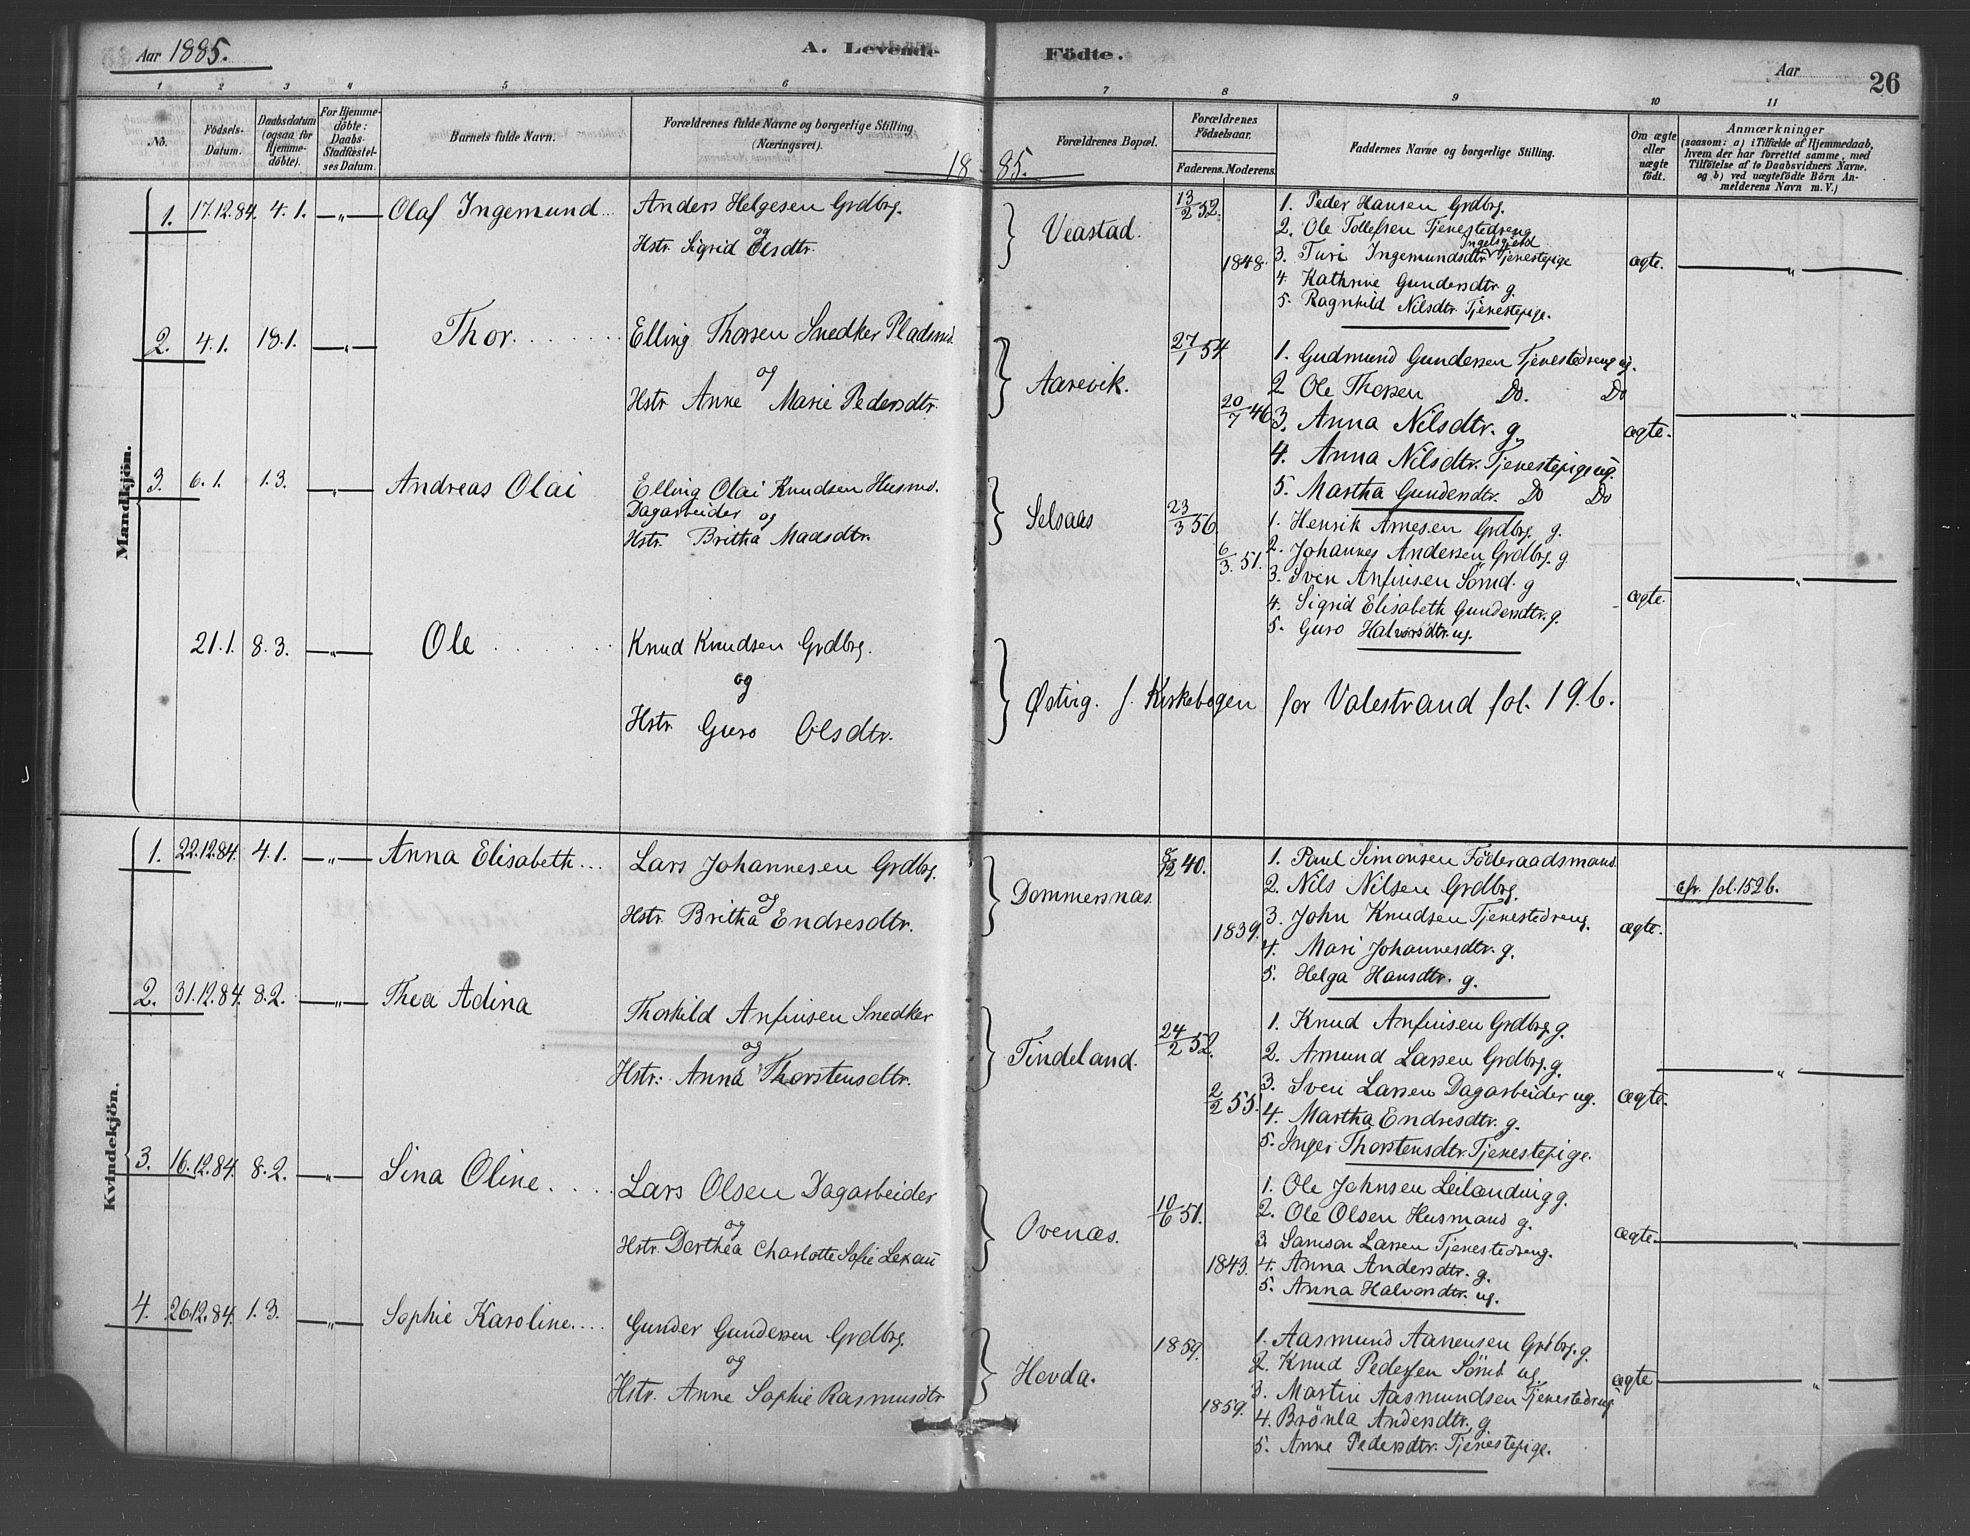 Aar 1885.
A. Levende Födte.
Aar
26
1 2 3 4 5 6 7 8 9 10 11
No.
Födsels-Datum.
Daabsdatum (ogsaa for Hjemmedöbte).
For Hjemmedöbte: Daabs-Stadfæstelses Datum.
Barnets fulde Navn.
Forældrenes fulde Navne og borgerlige Stilling (Næringsvei).
Forældrenes Bopæl.
Forældrenes Födselsaar.
Faderens. Moderens.
Faddernes Navne og borgerlige Stilling.
Om ægte eller uægte födt.
Anmærkninger
(saasom: a) i Tilfælde af Hjemmedaab, hvem der har forrettet samme, med Tilföielse af to Daabsvidners Navne, og b) ved uægtefödte Börn Anmelderens Navn m. V.)
1885.
Mandkjön.
1. 17.12.84. 4.1. —„— Olaf Ingemund..
Anders Helgesen Grdbrg.
og
Hstr. Sigrid Olsdtr.
Veastad.
13/2 52.
1848.
1. Peder Hansen Grdbrg.
2. Ole Tollefsen Tjenestedreng
Ingebgjerd
3. Turi Ingemundsdtr Tjenestepige
4. Kathrine Gundersdtr g.
5. Ragnhild Nilsdtr. Tjenestepige.
ægte.
„
2. 4.1. 18.1. —„— Thor.
Elling Thorsen Snedker Pladsmd.
og
Hstr. Anne Marie Pedersdtr.
Aarevik.
27/1 54.
20/7 46
1. Gudmund Gundersen Tjenestedreng ug.
2 Ole Thorsen Do. Do
3. Anna Nilsdtr. g.
4. Anna Nilsdtr. Tjenestepige ug.
5. Martha Gundersdtr. Do Do
ægte.
„
3. 6.1. 1.3. —„— Andreas Olai
Elling Olai Knudsen Husmd.
Dagarbeider og
Hstr. Britha Madsdtr.
Selsaas
23/3 56.
6/3 51.
1. Henrik Arnesen Grdbrg. g.
2. Johannes Andersen Grdbrg. g
3. Sven Anfinsen Sömd. g
4. Sigrid Elisabeth Gundersdtr. g.
5. Guro Halvorsdtr. ug.
ægte.
„
21.1. 8.3. —„— Ole
Knud Knudsen Grdbrg.
og
Hstr. Guro Olsdtr.
Østvig. f. Kirkebogen for Valestrand fol. 19 b.
Kvindekjön.
1. 22.12.84. 4.1. —„— Anna Elisabeth...
Lars Johannesen Grdbrg.
og
Hstr. Britha Endresdtr.
Dommersnæs.
8/12 40.
1839.
1. Paul Simonsen Föderaadsmand.
2. Nils Nilsen Grdbrg.
3. John Knudsen Tjenestedreng.
4. Mari Johannesdtr. g.
5. Helga Hansdtr. g.
ægte.
cfr. fol. 152 b.
2. 31.12.84. 8.2. —„— Thea Adina
Thorkild Anfinsen Snedker
og
Hstr: Anna Thorstensdtr.
Tindeland.
24/2 52.
2/2 55.
1. Knud Anfinsen Grdbrg. g.
2. Amund Larsen Grdbrg. g.
3. Sven Larsen Dagarbeider ug.
4. Martha Endresdtr. g.
5. Inger Thorstensdtr. Tjenestepige.
ægte.
„
3. 16.12.84. 8.2. —„— Sina Oline.
Lars Olsen Dagarbeider
og
Hstr. Dorthea Charlotte Sofie Lexau
Ovenæs.
10/6 51.
1843.
1. Ole Johnsen Leilænding g.
2. Ole Olsen Husmand g.
3. Samson Larsen Tjenestedreng.
4. Anna Andersdtr. g.
5. Anna Halvorsdtr. ug.
ægte.
„
4. 26.12.84. 1.3. —„— Sophie Karoline....
Gunder Gundersen Grdbrg.
og
Hstr. Anne Sophie Rasmusdtr
Hovda.
1859.
1859.
1. Aasmund Aanensen Grdbrg. g.
2. Knud Pedersen Sömd ug.
3. Martin Aasmundsen Tjenestedreng
4. Brönla Andersdtr. g.
5. Anne Pedersdtr. Tjenestepige.
ægte
„